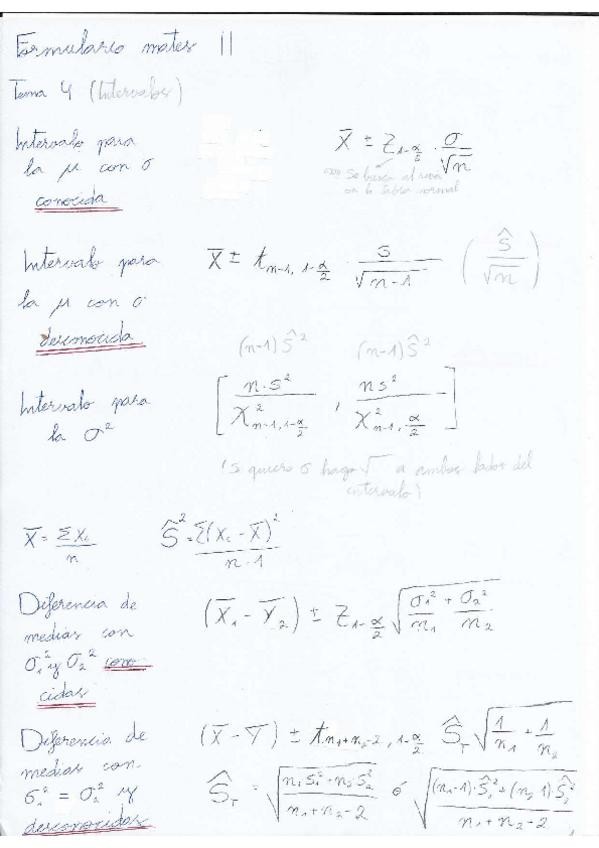 Formulario mates II
Tema 4 (Intervalos)
Intervalo para
la μ con σ
conocida
X̄ ± Z₁₋α/₂ · σ/√n
se busca al revés
en la tabla normal
Intervalo para
la μ con σ
desconocida
X̄ ± t n-1, 1-α/2 · s/√(n-1) (Ŝ/√n)
(n-1)Ŝ² (n-1)Ŝ²
Intervalo para
la σ²
[ n·s²/χ² n-1, 1-α/2 , ns²/χ² n-1, α/2 ]
(s quiero σ hago √ a ambos lados del
intervalo)
X̄ = Σxᵢ/n Ŝ² = Σ(xᵢ - X̄)²/n-1
Diferencia de
medias con
σ₁² y σ₂² cono
cidas
(X̄₁ - Ȳ₂) ± Z₁₋α/₂ √(σ₁²/n₁ + σ₂²/n₂)
Diferencia de
medias con
σ₁² = σ₂² y
desconocidas
(X̄ - Ȳ) ± t n₁+n₂-2, 1-α/2 Ŝ_T √(1/n₁ + 1/n₂)
Ŝ_T = √(n₁S₁² + n₂S₂²/n₁+n₂-2) ó √((n₁-1)·Ŝ₁² + (n₂-1)Ŝ₂²/n₁+n₂-2)